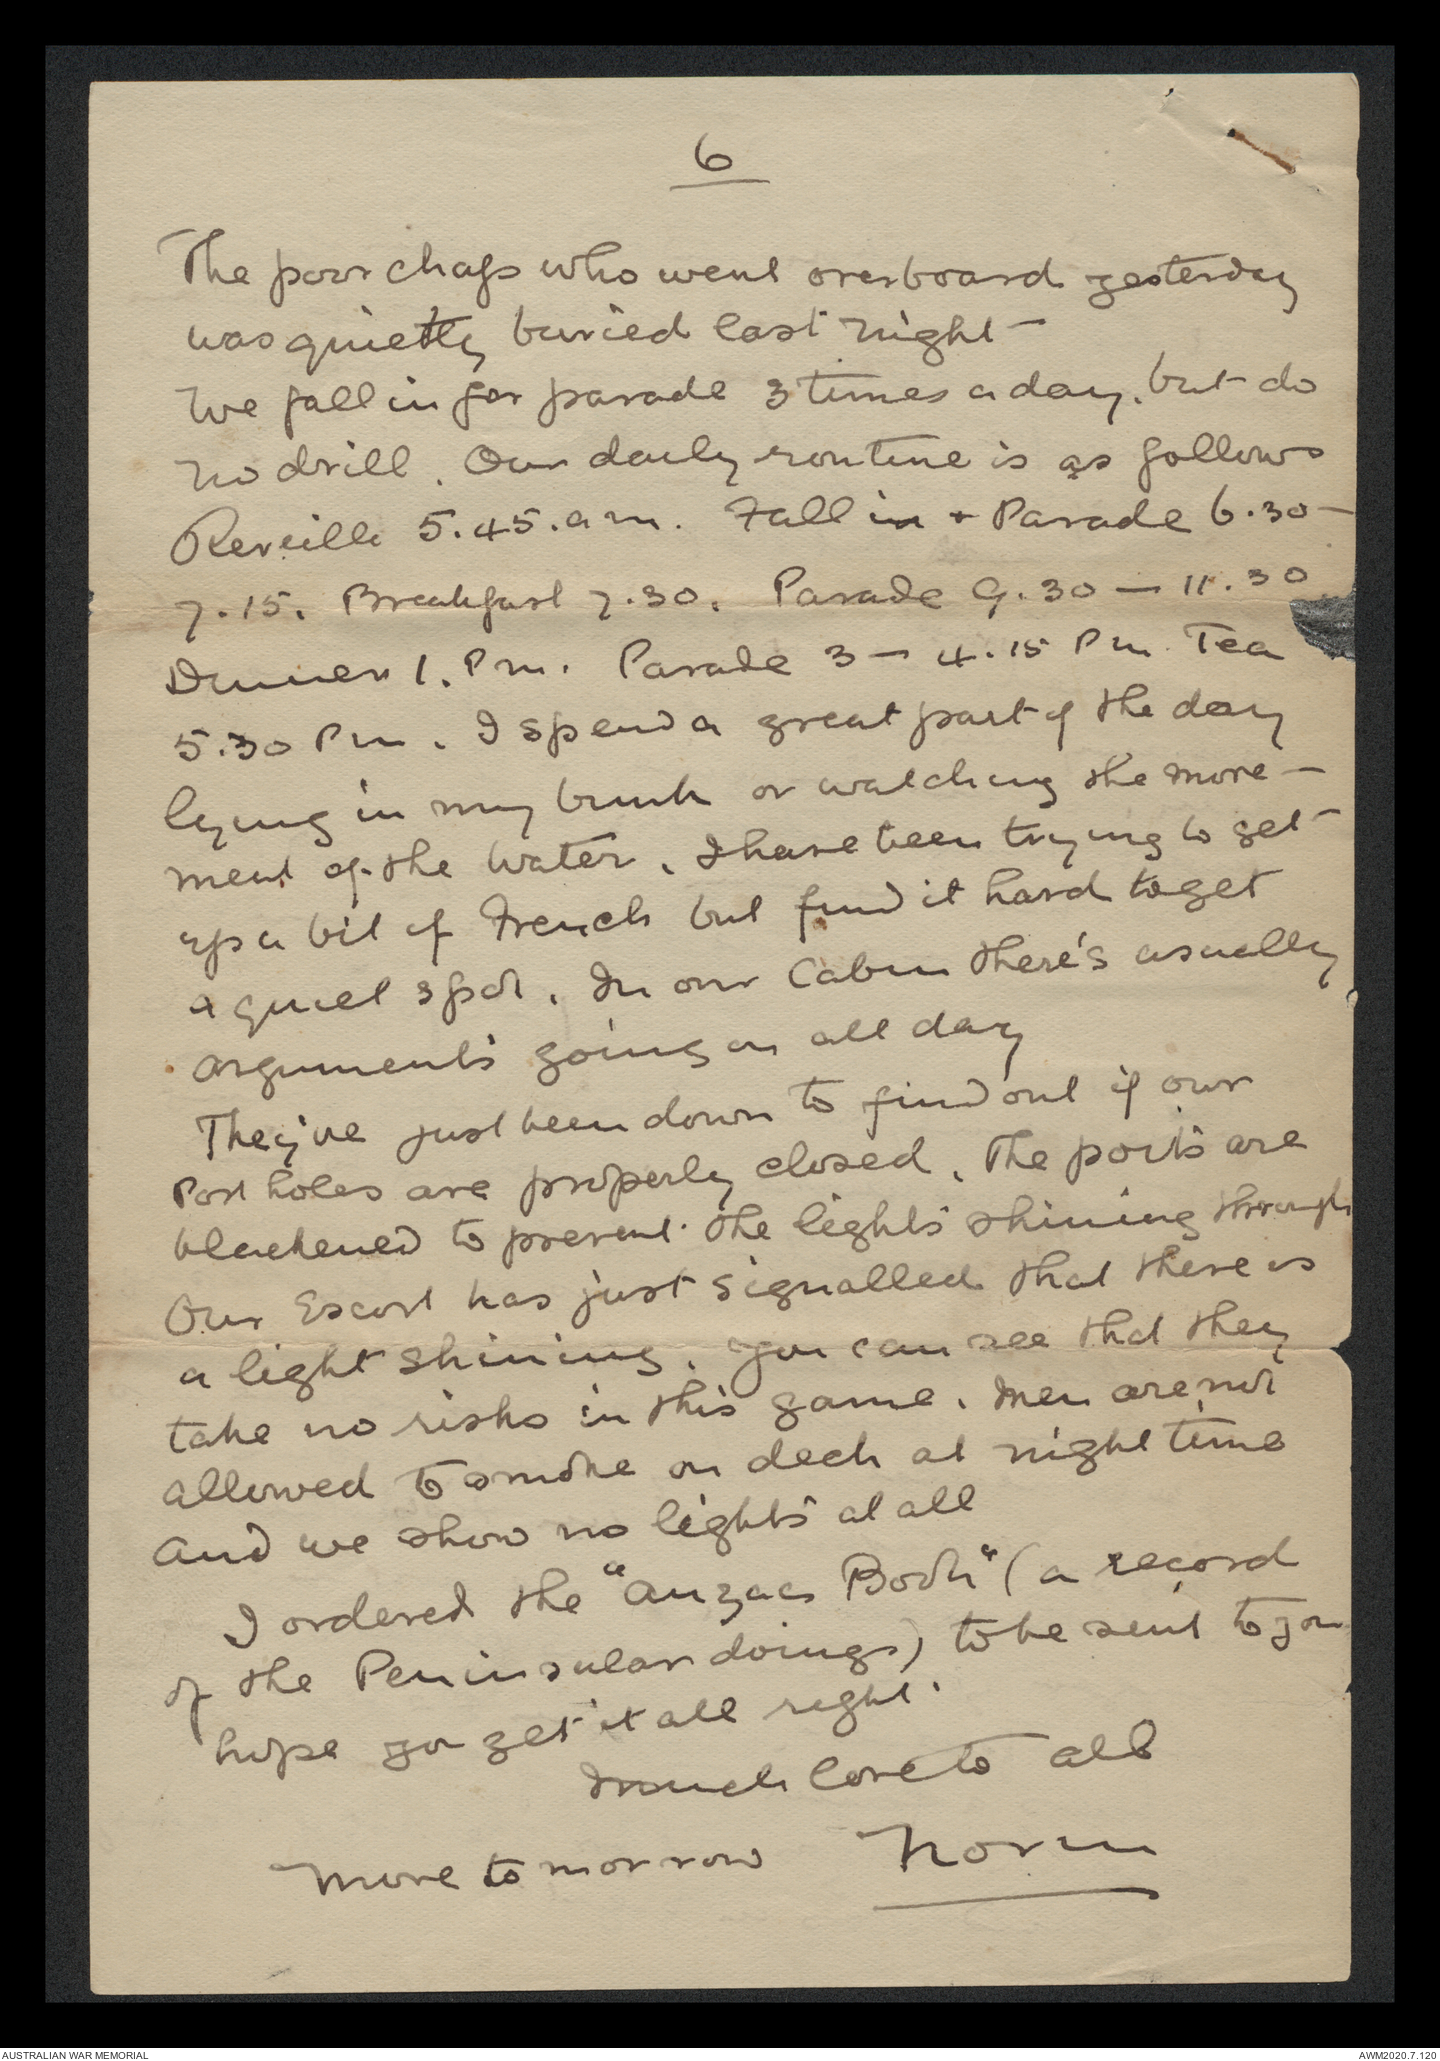 6
The poor chaps who went overboard yesterday
was quietly buried last night -
We fall in for parade 3 times a day, but do
no drill. Our daily routine is as follows
Reveille 5.45. a m. Fall in + Parade 6.30 -
7.15. Breakfast 7.30. Parade 9.30 — 11.30
Dinner 1. Pm. Parade 3 — 4.15 Pm. Tea
5.30 Pm. I spend a great part of the day
lying in my bunk or watching the move -
ment of the water. I have been trying to get
up a bit of French but find it hard to get
a quiet spot. In our Cabin there's usually
arguments going on all day
They've just been down to find out if our
Port holes are properly closed. The ports are
blackened to prevent the lights shining through
Our Escort has just signalled that there is
a light shining. You can see that they
take no risks in this game. Men are not
allowed to smoke on deck at night time
And we show no lights at all
I ordered the "Anzacs Book" (a record
of the Peninsular doings) to be sent to you
hope you get it all right.
Much love to all
More tomorrow Norm
AUSTRALIAN WAR MEMORIAL
AWM2020.7.120